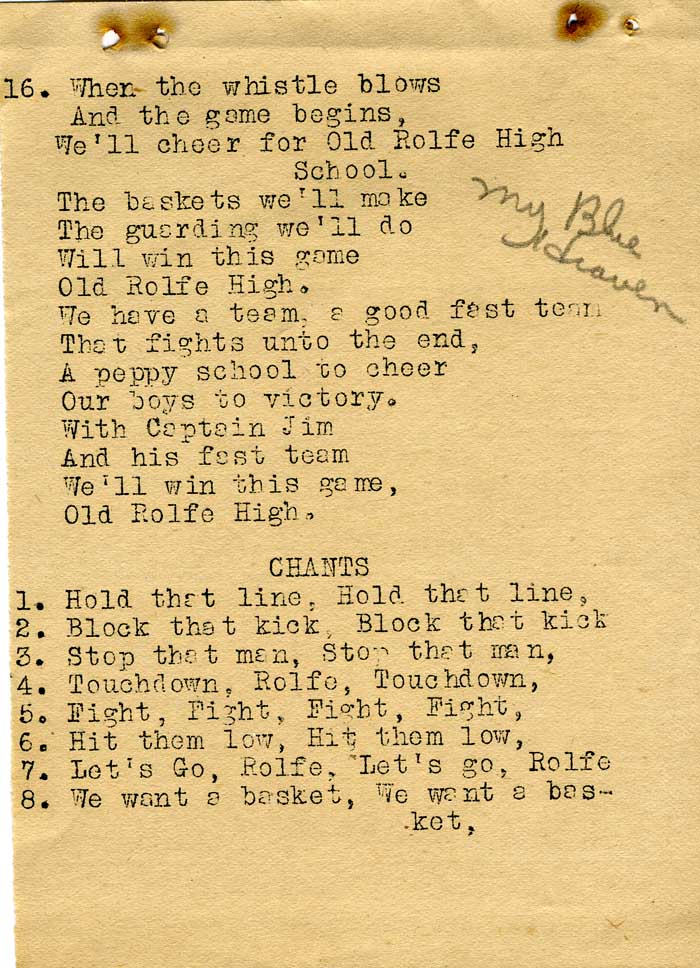 16. When the whistle blows
And the game begins,
We'll cheer for Old Rolfe High
School.
The baskets we'll make
The guarding we'll do
Will win this game
Old Rolfe High.
We have a team, a good fast team
That fights unto the end,
A peppy school to cheer
Our boys to victory.
With Captain Jim
And his fast team
We'll win this game,
Old Rolfe High.
My Blue
Heaven
CHANTS
1. Hold that line, Hold that line,
2. Block that kick, Block that kick
3. Stop that man, Stop that man,
4. Touchdown, Rolfe, Touchdown,
5. Fight, Fight, Fight, Fight,
6. Hit them low, Hit them low,
7. Let's Go, Rolfe, Let's go, Rolfe
8. We want a basket, We want a bas-
ket,